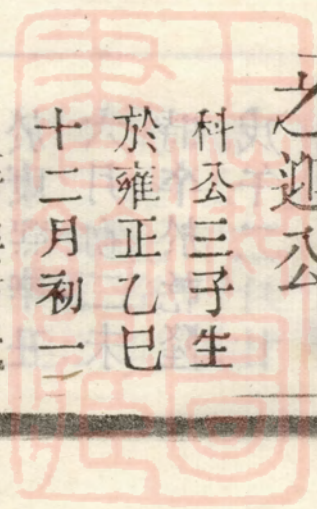 之迎公
科公三子生
於雍正乙巳
十二月初一